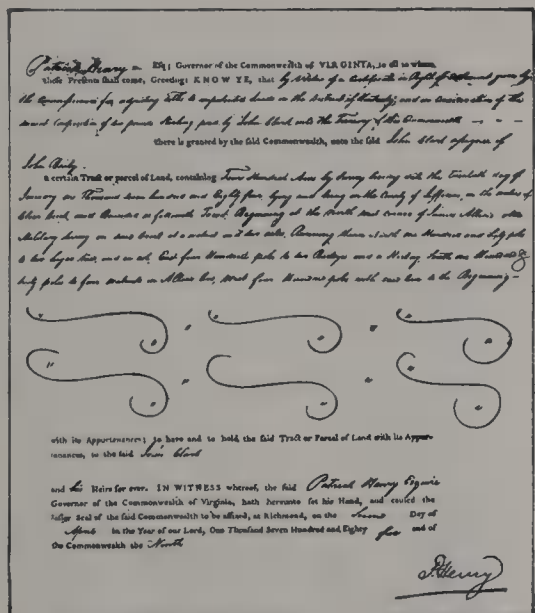 Patrick Henry Esq; Governor of the Commonwealth of VIRGINIA, to all to whom
these Presents shall come, Greeting: KNOW YE, that by virtue of a Certificate in Right of Settlement given by
the Commissioners for adjusting titles to unpatented lands in the District of Kentucky and in consideration of the
Composition of two pounds Sterling paid by John Clark into the Treasury of this Commonwealth
there is granted by the said Commonwealth, unto the said John Clark assignee of
John
a certain Tract or parcel of Land, containing Four Hundred Acres by Survey bearing date the twentieth day of
January one Thousand seven hundred and Eighty four, lying and being in the County of Jefferson, on the waters of
and bounded as followeth Towit, Beginning at the North east corner of James
Military Survey on at a and two North one Hundred and Sixty poles
to two Sugar trees, and an ash, East four Hundred poles to two and a South one Hundred &
Sixty poles to four in line, West four Hundred poles with said line to the Beginning
with its Appurtenances; to have and to hold the said Tract or Parcel of Land with its Appur-
tenances, to the said John Clark
and his Heirs for ever. IN WITNESS whereof, the said Patrick Henry Esquire
Governor of the Commonwealth of Virginia, hath hereunto set his Hand, and caused the
lesser Seal of the said Commonwealth to be affixed, at Richmond, on the Second Day of
in the Year of our Lord, One Thousand Seven Hundred and Eighty five and of
the Commonwealth the Ninth
P. Henry